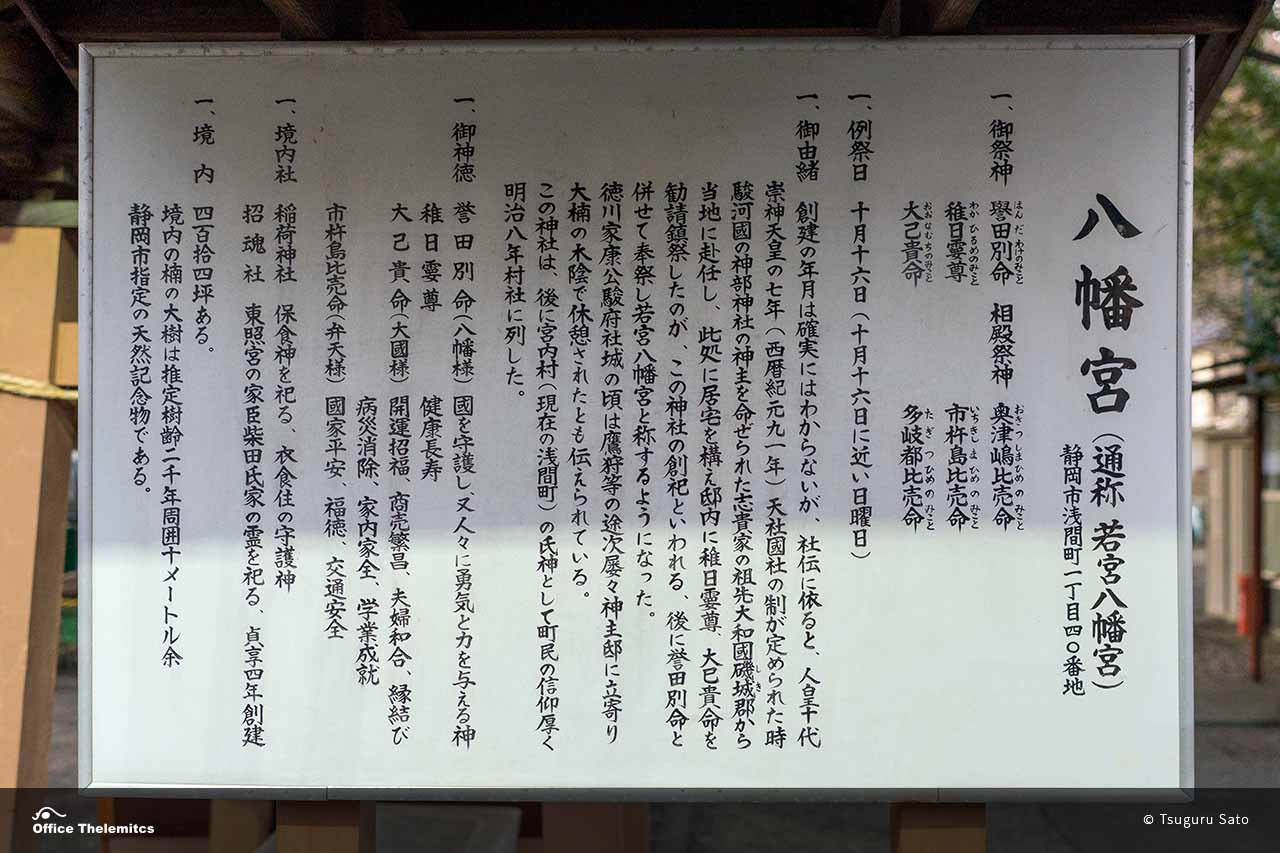 八幡宮(通称 若宮八幡宮)
静岡市浅間町一丁目四〇番地
一、御祭神 譽田別命 相殿祭神 奥津嶋比売命
はんだわけのみこと おきつしまひめのみこと
稚日霎尊 市杵島比売命
わかひるめのみこと いちきしまひめのみこと
大己貴命 多岐都比売命
おおなむちのみこと たぎつひめのみこと
一、例祭日 十月十六日(十月十六日に近い日曜日)
一、御由緒 創建の年月は確実にはわからないが、社伝に依ると、人皇十代
崇神天皇の七年(西暦紀元九一年)天社國社の制が定められた時
駿河國の神部神社の神主を命ぜられた志貴家の祖先大和國磯城郡から
しき
当地に赴任し、此処に居宅を構え邸内に稚日霎尊、大己貴命を
勧請鎮祭したのが、この神社の創祀といわれる、後に誉田別命と
併せて奉祭し若宮八幡宮と称するようになった。
徳川家康公駿府社城の頃は鷹狩等の途次屡々神主邸に立寄り
大楠の木陰で休憩されたとも伝えられている。
この神社は、後に宮内村(現在の浅間町)の氏神として町民の信仰厚く
明治八年村社に列した。
一、御神徳 誉田別命(八幡様)國を守護し、又人々に勇気と力を与える神
稚日霎尊 健康長寿
大己貴命(大國様)開運招福、商売繁昌、夫婦和合、縁結び
病災消除、家内家全、学業成就
市杵島比売命(弁天様)國家平安、福徳、交通安全
一、境内社 稲荷神社 保食神を祀る、衣食住の守護神
招魂社 東照宮の家臣柴田氏家の霊を祀る、貞享四年創建
一、境内 四百拾四坪ある。
境内の楠の大樹は推定樹齢二千年周囲十メートル余
静岡市指定の天然記念物である。
Office Thelemitcs
© Tsuguru Sato